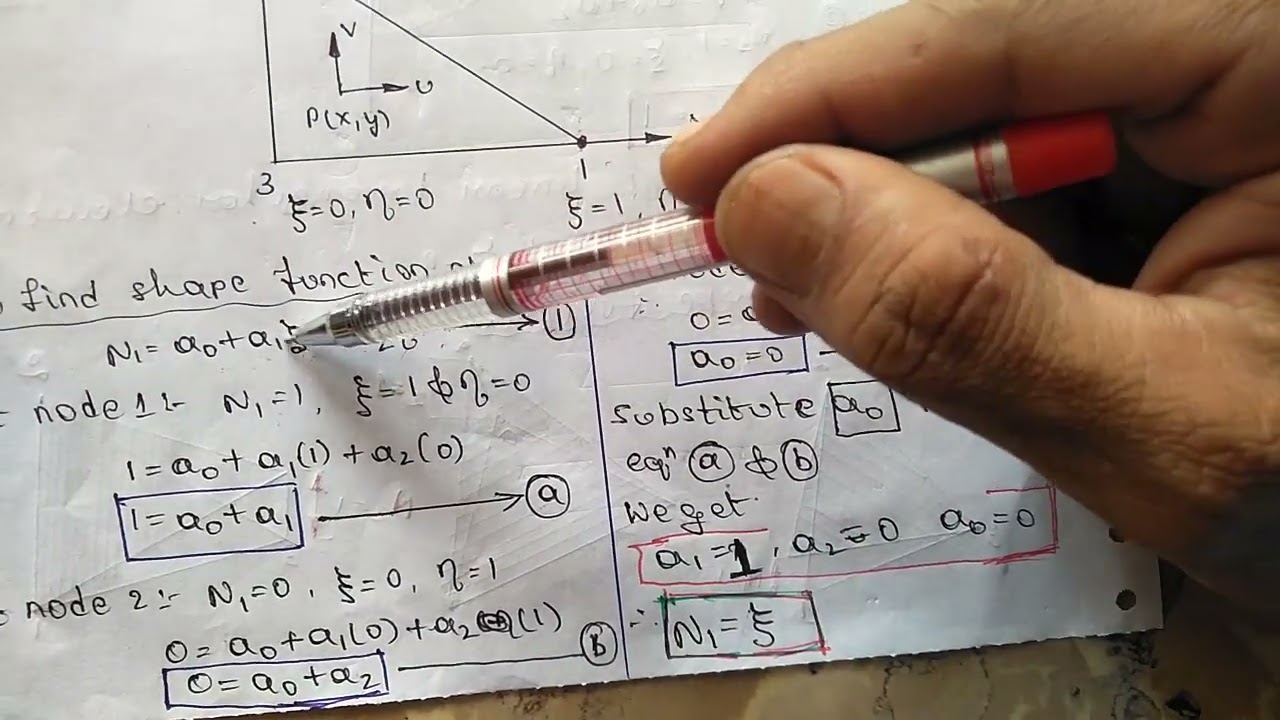 V
U
P(x,y)
1
3
ξ=0, η=0
ξ=1,
find shape function
N₁ = a₀ + a₁ξ
①
node 1:- N₁=1, ξ=1 & η=0
1 = a₀ + a₁(1) + a₂(0)
1 = a₀ + a₁ ⓐ
node 2:- N₁=0, ξ=0, η=1
0 = a₀ + a₁(0) + a₂(1)
0 = a₀ + a₂ ⓑ
∴
0 =
a₀ = 0
substitute a₀
eqⁿ ⓐ & ⓑ
we get
a₁ = 1, a₂ = 0 a₀ = 0
∴ N₁ = ξ